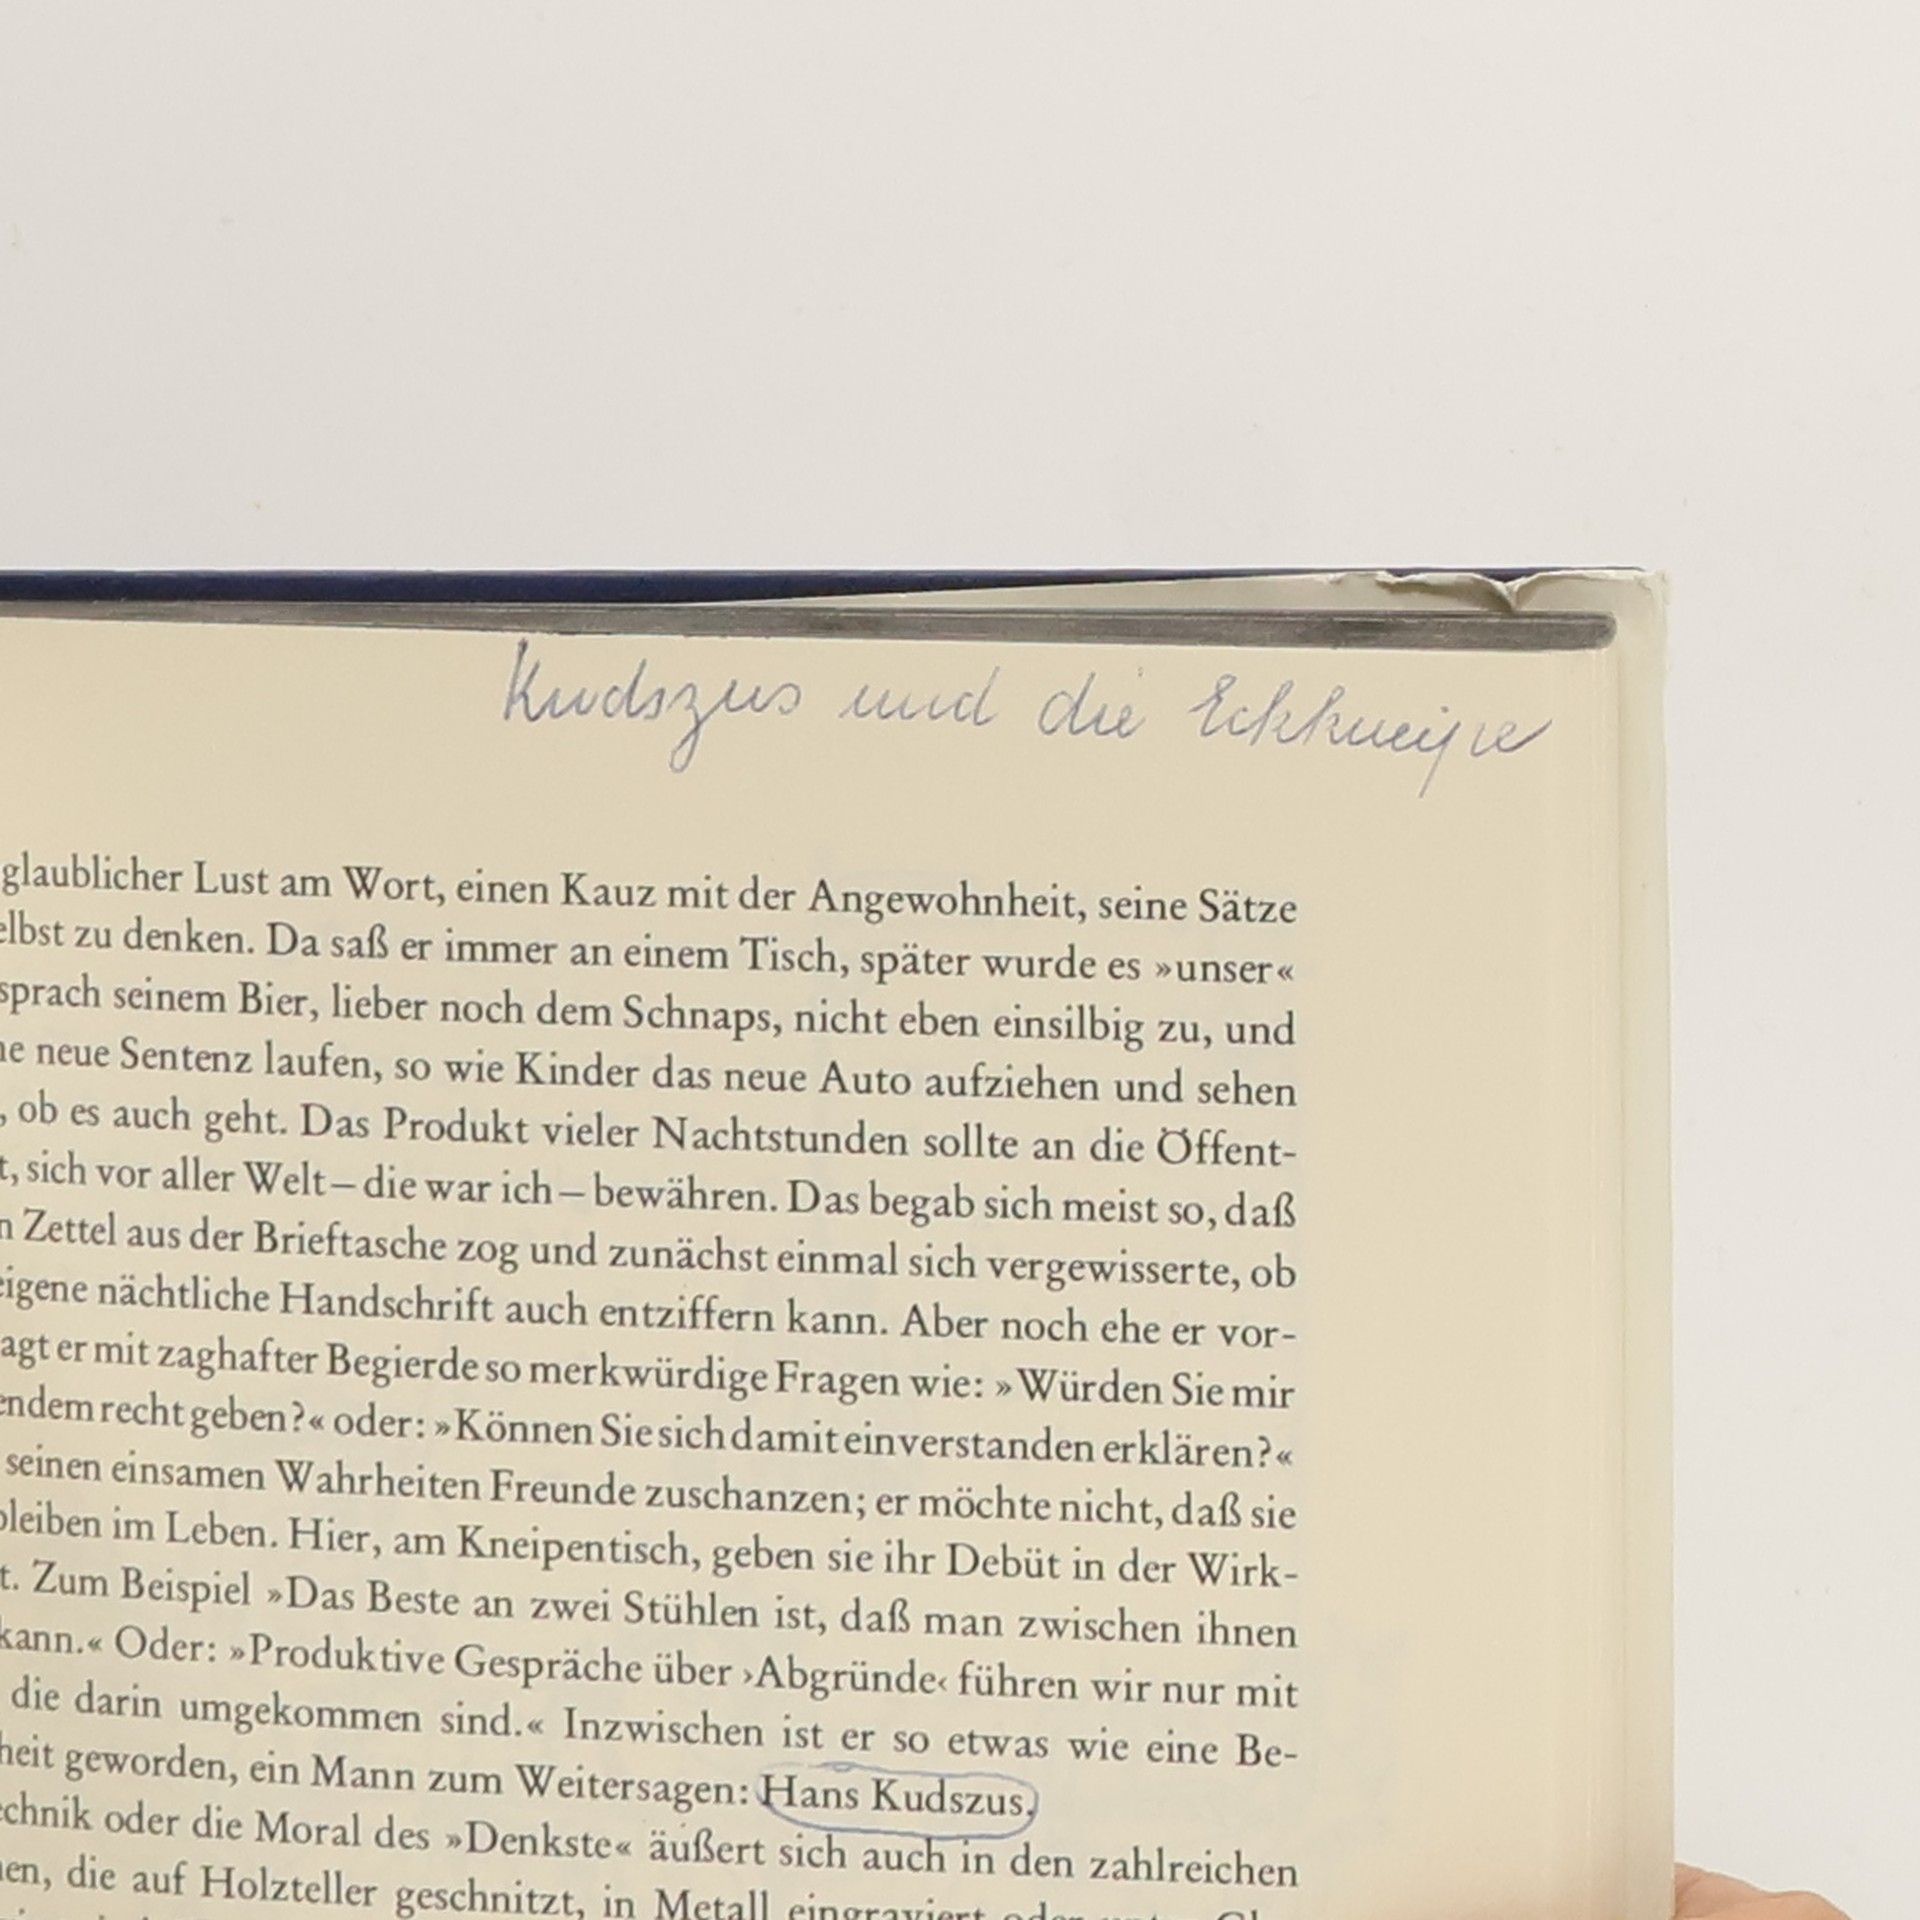 Kudszus und die Eckkneipe
glaublicher Lust am Wort, einen Kauz mit der Angewohnheit, seine Sätze
elbst zu denken. Da saß er immer an einem Tisch, später wurde es »unser«
sprach seinem Bier, lieber noch dem Schnaps, nicht eben einsilbig zu, und
ne neue Sentenz laufen, so wie Kinder das neue Auto aufziehen und sehen
, ob es auch geht. Das Produkt vieler Nachtstunden sollte an die Öffent-
t, sich vor aller Welt – die war ich – bewähren. Das begab sich meist so, daß
n Zettel aus der Brieftasche zog und zunächst einmal sich vergewisserte, ob
eigene nächtliche Handschrift auch entziffern kann. Aber noch ehe er vor-
agt er mit zaghafter Begierde so merkwürdige Fragen wie: »Würden Sie mir
endem recht geben?« oder: »Können Sie sich damit einverstanden erklären?«
seinen einsamen Wahrheiten Freunde zuschanzen; er möchte nicht, daß sie
bleiben im Leben. Hier, am Kneipentisch, geben sie ihr Debüt in der Wirk-
t. Zum Beispiel »Das Beste an zwei Stühlen ist, daß man zwischen ihnen
kann.« Oder: »Produktive Gespräche über ›Abgründe‹ führen wir nur mit
die darin umgekommen sind.« Inzwischen ist er so etwas wie eine Be-
heit geworden, ein Mann zum Weitersagen: Hans Kudszus.
echnik oder die Moral des »Denkste« äußert sich auch in den zahlreichen
nen, die auf Holzteller geschnitzt, in Metall eingraviert oder